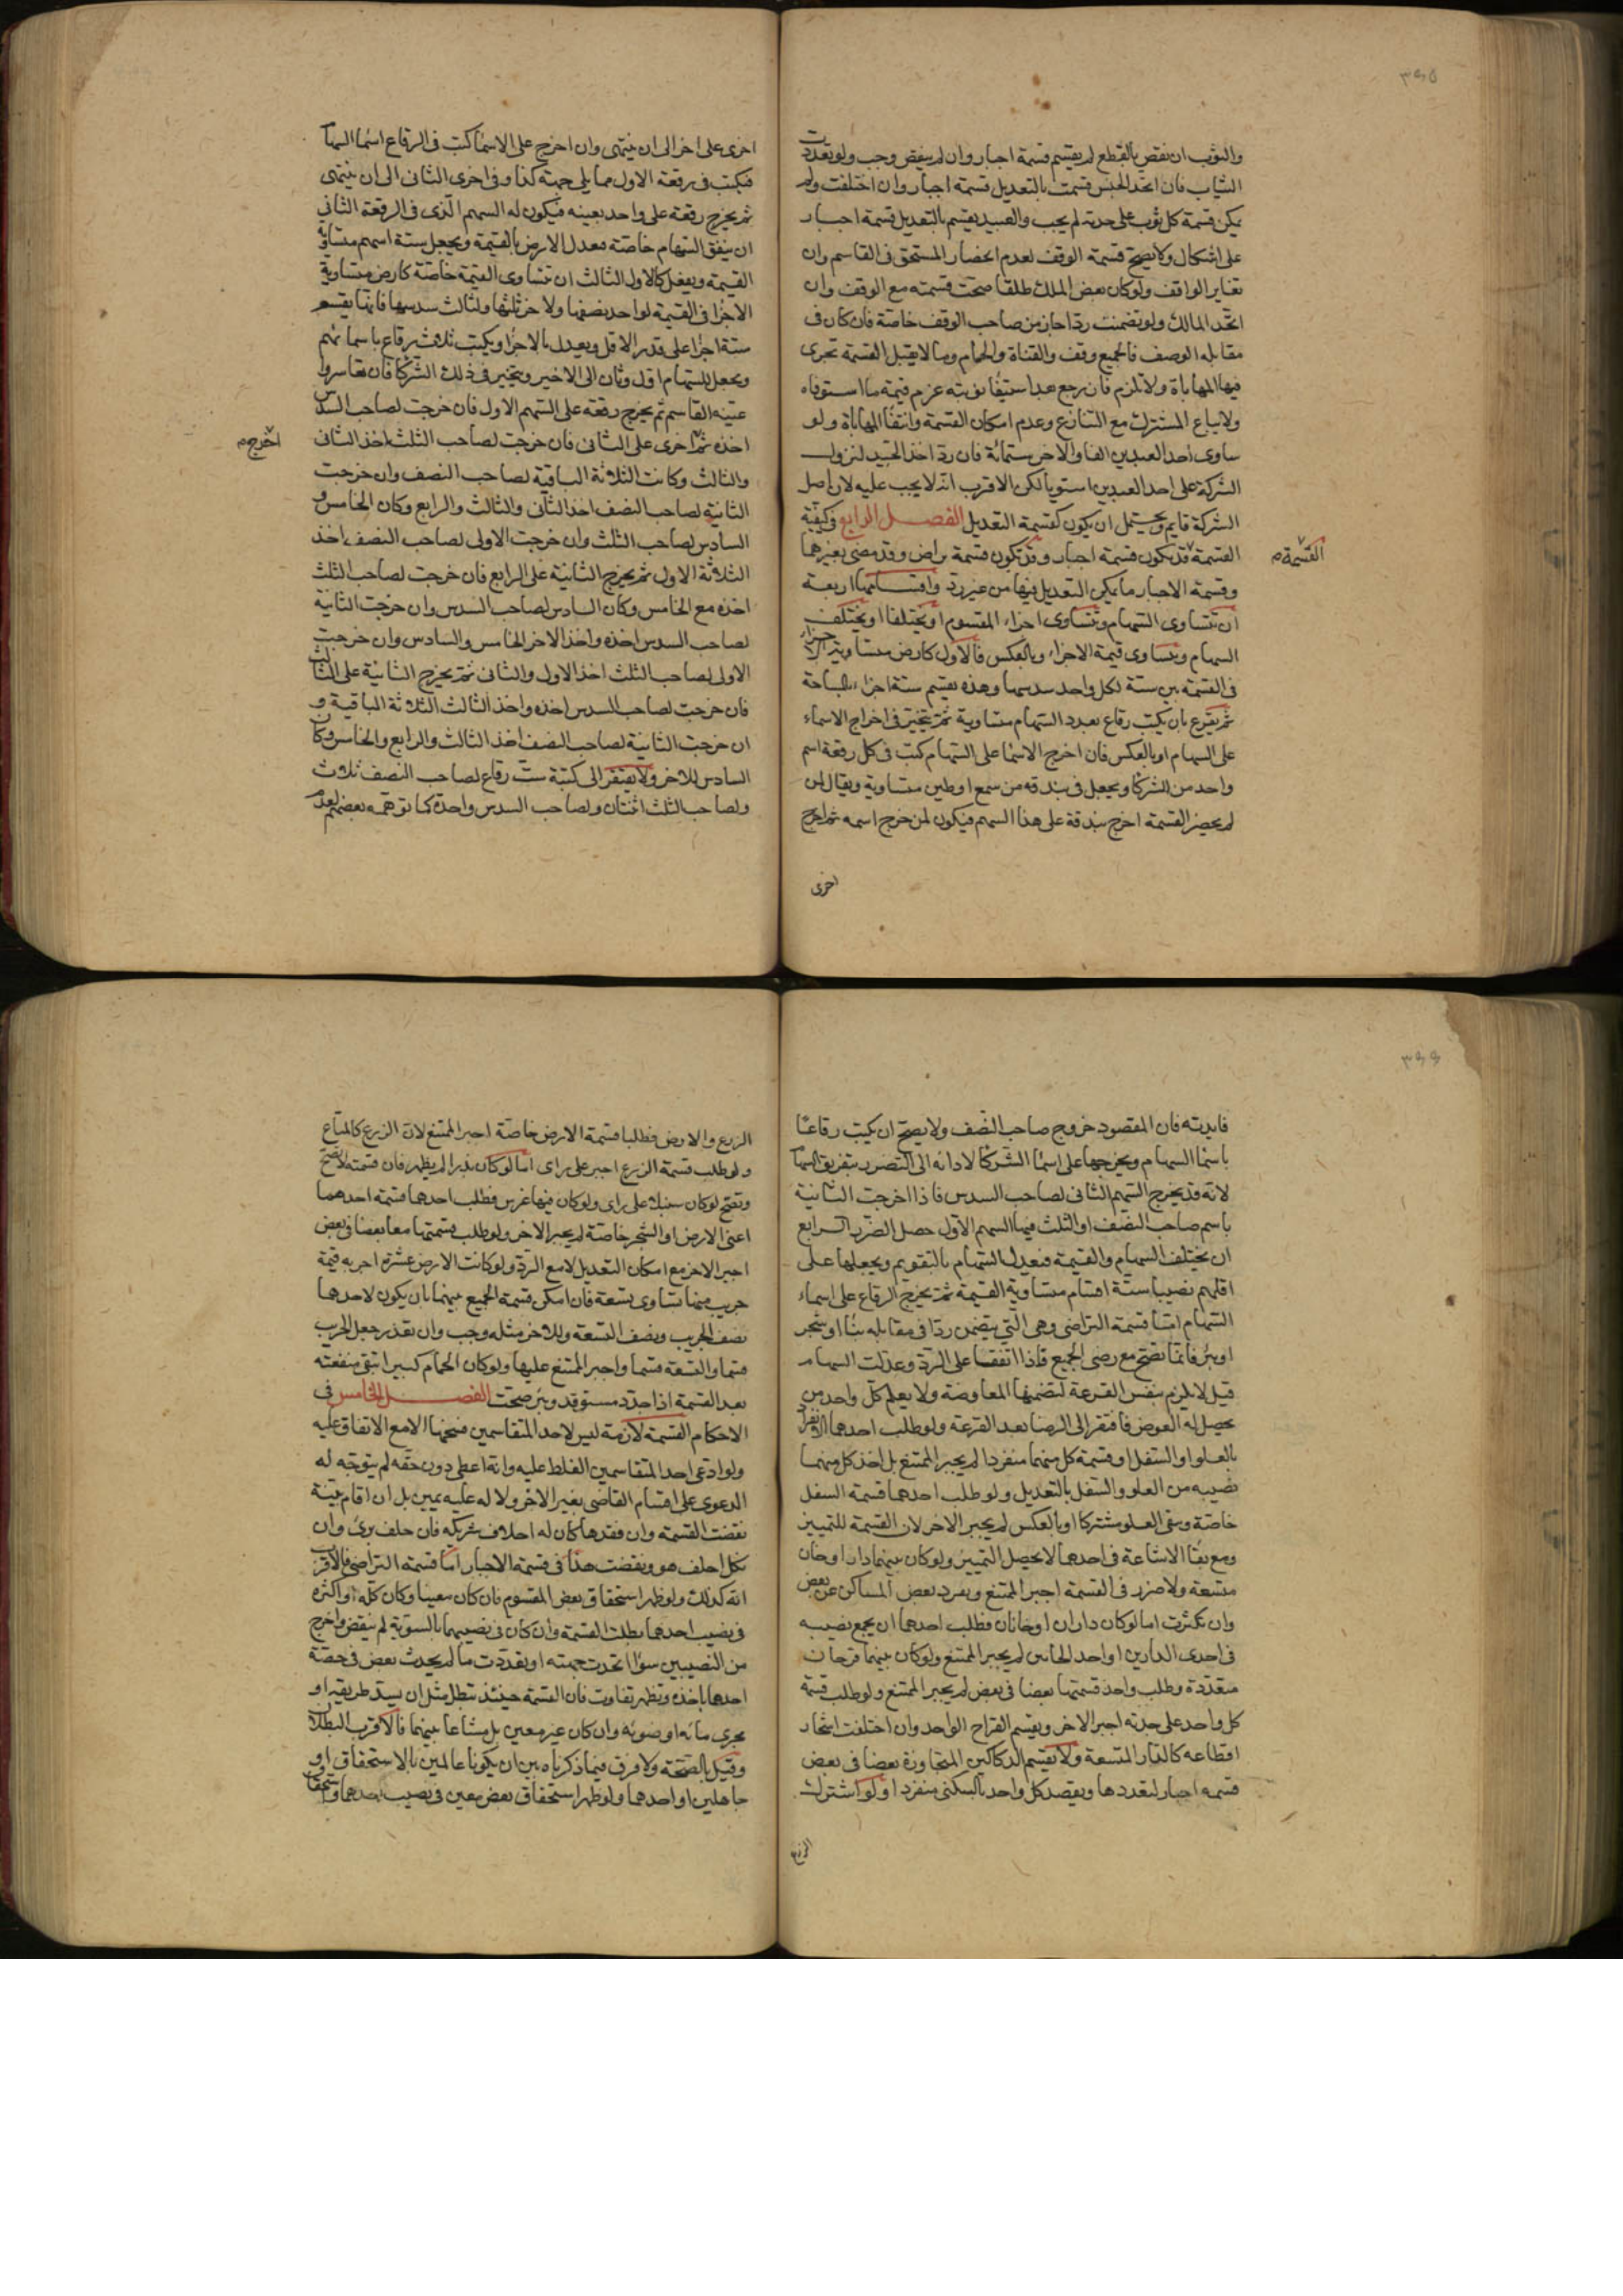 ٣٩٥
والثوب ان نقص بالقطع لم يقسم قسمة اجبار وان لم ينقص وجب ولو تعددت
الثياب فان اتحد الجنس قسمت بالتعديل قسمة اجبار وان اختلفت ولم
يمكن قسمة كل ثوب على حدته لم يجب والعبيد يقسم بالتعديل قسمة اجبار
على اشكال ولا يصح قسمة الوقف لعدم انحصار المستحق في القاسم وان
تغاير الواقف ولو كان بعض الملك طلقا صحت قسمته مع الوقف وان
اتحد المالك ولو تضمنت ردا جاز من صاحب الوقف خاصة فان كان في
مقابله الوصف فالجميع وقف والقناة والحمام وما لا يقبل القسمة تجرى
فيها المهاياة ولا تلزم فان رجع بعد استيفا نوبته غرم قيمة ما استوفاه
ولا يباع المشترك مع التنازع وعدم امكان القسمة وانتفا المهاياة ولو
ساوى احد العبدين الفا والاخر ستمائة فان رد اخذ الجيد لنزول
الشركة على احد العبدين استويا لكن الاقرب انه لا يجب عليه لان اصل
الشركة قايم ويحتمل ان يكون كقسمة التعديل الفصل الرابع في كيفية
القسمة قد يكون قسمة اجبار وقد تكون قسمة تراض وقد مضى بغيرهما
القسمة م
وقسمة الاجبار ما يمكن التعديل فيها من غير رد واقسامها اربعة
ان تتساوى السهام وتتساوى اجزاء المقسوم او يختلفا او يختلف
السهام ويتساوى قيمة الاجزاء وبالعكس فالاول كارض متساوية الاجزاء
في القسمة بين ستة لكل واحد سدسها وهذه يقسم ستة اجزاء بالمساحة
ثم يقرع بان يكتب رقاع بعدد السهام متساوية ثم يتخير في اخراج الاسماء
على السهام او بالعكس فان اخرج الاسما على السهام كتب في كل رقعة اسم
واحد من الشركا ويجعل في بندقه من شمع او طين متساوية ويقال لمن
لم يحضر القسمة اخرج بندقة على هذا السهم فيكون لمن خرج اسمه ثم اخرج
اخرى
اخرى على اخر الى ان ينتهى وان اخرج على الاسما كتب في الرقاع اسما السهام
فيكتب في رقعة الاول مما يلى جهة كذا وفي اخرى الثانى الى ان ينتهى
ثم يخرج رقعة على واحد بعينه فيكون له السهم الذى في الرقعة الثاني
ان يتفق السهام خاصة فعدل الارض بالقيمة ويجعل ستة اسهم متساوية
القيمة ويفعل كالاول الثالث ان تتساوى القيمة خاصة كارض متساوية
الاجزا في القيمة لواحد نصفها ولاخر ثلثها ولثالث سدسها فانها يقسم
ستة اجزا على قدر الاقل ويعدل بالاجزا ويكتب ثلاث رقاع باسمائهم
ويجعل للسهام اول وثان الى الاخير ويتخير في ذلك الشركا فان تعاسروا
عينه القاسم ثم يخرج رقعة على السهم الاول فان خرجت لصاحب السدس
اخذه ثم اخرى على الثانى فان خرجت لصاحب الثلث اخذ الثانى
اخرج م
والثالث وكانت الثلاثة الباقية لصاحب النصف وان خرجت
الثانية لصاحب النصف اخذ الثانى والثالث والرابع وكان الخامس و
السادس لصاحب الثلث وان خرجت الاولى لصاحب النصف اخذ
الثلاثة الاول ثم يخرج الثانية على الرابع فان خرجت لصاحب الثلث
اخذه مع الخامس وكان السادس لصاحب السدس وان خرجت الثانية
لصاحب السدس اخذه واخذ الاخر الخامس والسادس وان خرجت
الاولى لصاحب الثلث اخذ الاول والثانى ثم يخرج الثانية على الثالث
فان خرجت لصاحب السدس اخذه واخذ الثالث الثلاثة الباقية و
ان خرجت الثانية لصاحب النصف اخذ الثالث والرابع والخامس وكان
السادس للاخر ولا يفتقر الى كتبة ست رقاع لصاحب النصف ثلاث
ولصاحب الثلث اثنتان ولصاحب السدس واحدة كما توهمه بعضهم لعدم
٣٩٦
فايدته فان المقصود خروج صاحب النصف ولا يصح ان يكتب رقاعا
باسما السهام ويخرجها على اسما الشركا لادائه الى التضرر بتفريق السهام
لانه قد يخرج السهم الثانى لصاحب السدس فاذا اخرجت الثانية
باسم صاحب النصف او الثلث فيها السهم الاول حصل الضرر الرابع
ان يختلف السهام والقيمة فيعدل السهام بالتقويم ويجعلها على
اقلهم نصيبا ستة اقسام متساوية القيمة ثم يخرج الرقاع على اسماء
السهام اما قسمة التراضى وهى التي يتضمن ردا في مقابله بنا او شجر
او بئر فانما تصح مع رضى الجميع فاذا اتفقا على الرد وعدلت السهام
قيل لا يلزم بنفس القرعة لتضمنها المعاوضة ولا يعلم كل واحد من
يحصل له العوض فافتقر الى الرضا بعد القرعة ولو طلب احدهما الانفراد
بالعلو او السفل او قسمة كل منهما منفردا لم يجبر الممتنع بل اخذ كل منهما
نصيبه من العلو والسفل بالتعديل ولو طلب احدهما قسمة السفل
خاصة وبقى العلو مشتركا او بالعكس لم يجبر الاخر لان القسمة للتمييز
ومع بقا الاشاعة في احدهما لا يحصل التمييز ولو كان بينهما دار او خان
متسعة ولا ضرر في القسمة اجبر الممتنع ويفرد بعض المساكن عن بعض
وان تكثرت اما لو كان داران او خانان فطلب احدهما ان يجمع نصيبه
في احدى الدارين او احد الخانين لم يجبر الممتنع ولو كان بينهما قرحان
متعددة وطلب واحد قسمتها بعضا في بعض لم يجبر الممتنع ولو طلب قسمة
كل واحد على حدته اجبر الاخر ويقسم القراح الواحد وان اختلفت اشجار
اقطاعه كالدار المتسعة ولا يقسم الدكاكين المتجاورة بعضا في بعض
قسمه اجبار لتعددها ويقصد كل واحد بالسكنى منفردا ولو اشترك
الزرع
الزرع والارض فطلبا قسمة الارض خاصة اجبر الممتنع لان الزرع كالمتاع
ولو طلب قسمة الزرع اجبر على راى اما لو كان بذرا لم يظهر فان قسمته لا تصح
وتصح لو كان سنبلا على راى ولو كان فيها غرس فطلب احدهما قسمة احدهما
اعنى الارض او الشجر خاصة لم يجبر الاخر ولو طلب قسمتهما معا بعضا في بعض
اجبر الاخر مع امكان التعديل لا مع الرد ولو كانت الارض عشرة اجربه قيمة
جريب منها تساوى تسعة فان امكن قسمة الجميع بينهما بان يكون لاحدهما
نصف الجريب ونصف التسعة وللاخر مثله وجب وان تعذر جعل الجريب
قسما والتسعة قسما واجبر الممتنع عليها ولو كان الحمام كبيرا تبقى منفعته
بعد القسمة اذا جدد مستوقد وبئر صحت الفصل الخامس في
الاحكام القسمة لازمة ليس لاحد المتقاسمين فسخها الا مع الاتفاق عليه
ولو ادعى احد المتقاسمين الغلط عليه وانه اعطى دون حقه لم يتوجه له
الدعوى على اقسام القاضى بغير الاخر ولا له عليه يمين بل ان اقام بينة
نقضت القسمة وان فقدها كان له احلاف شريكه فان حلف برئ وان
نكل احلف هو ونقضت هذا في قسمة الاجبار اما قسمة التراضى فالاقرب
انه كذلك ولو ظهر استحقاق بعض المقسوم فان كان معينا وكان كله او اكثره
في نصيب احدهما بطلت القسمة وان كان في نصيبهما بالسوية لم ينقض واخرج
من النصيبين سوا اتحدت جهته او تعددت ما لم يحدث نقض في حصة
احدهما باخذه وتظهر تفاوت فان القسمة حينئذ تبطل مثل ان يسد طريقه او
مجرى مائه او ضوئه وان كان غير معين بل مشاعا بينهما فالاقرب البطلان
وقيل بالصحة ولا فرق فيما ذكرناه بين ان يكونا عالمين بالاستحقاق او
جاهلين او احدهما ولو ظهر استحقاق بعض معين في نصيب احدهما واستحقاق